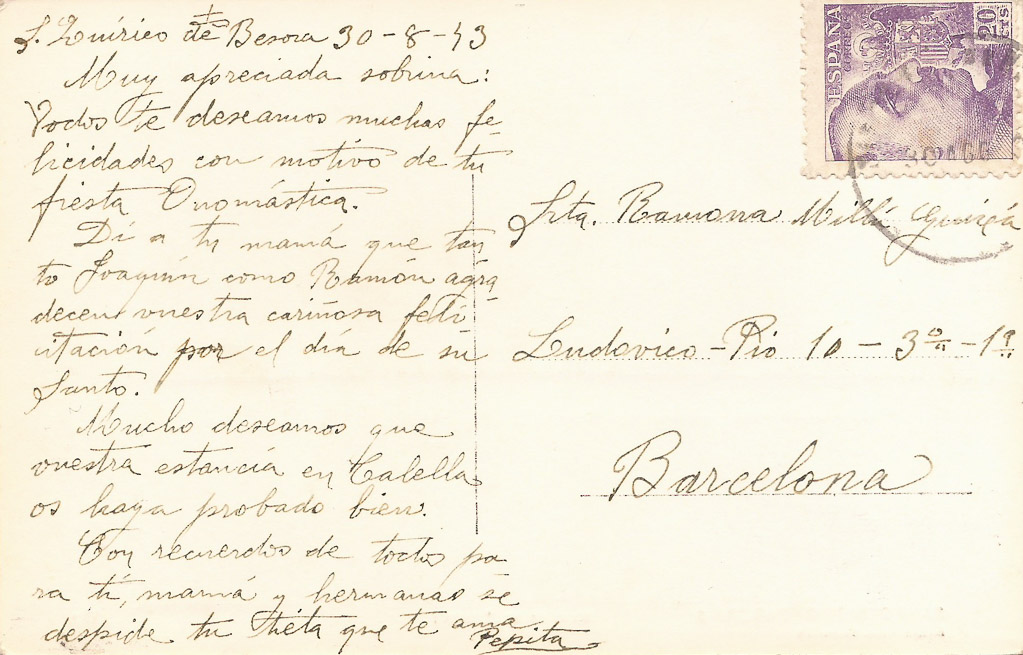 S. Quirico de Besora 30-8-43
Muy apreciada sobrina:
Todos te deseamos muchas fe-
licidades con motivo de tu
fiesta Onomástica.
Dí a tu mamá que tan
to Joaquín como Ramón agra
decen vuestra cariñosa feli
citación por el día de su
Santo.
Mucho deseamos que
vuestra estancia en Calella
os haya probado bien.
Con recuerdos de todos pa
ra tí, mamá y hermanas se
despide tu tieta que te ama
Pepita
ESPAÑA
CORREOS
20 cts
30 AGO
Srta. Ramona Millá
Ludovico-Pio 10 - 3º - 1ª
Barcelona